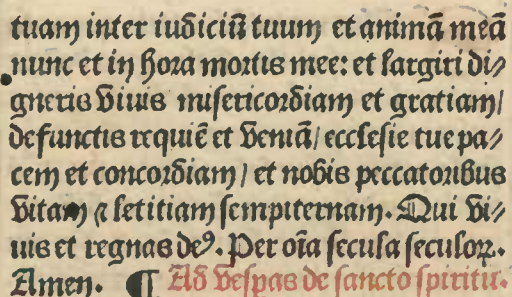 tuam inter iudiciū tuum et animā meā
nunc et in hora mortis mee: et largiri di⸗
gneris viuis misericordiam et gratiam/
defunctis requiē et veniā/ ecclesie tue pa⸗
cem et concordiam/ et nobis peccatoribus
vitam ⁊ letitiam sempiternam. Qui vi⸗
uis et regnas deꝰ. Per oīa secula seculoꝝ.
Amen. ¶ Ad vespas de sancto spiritu.